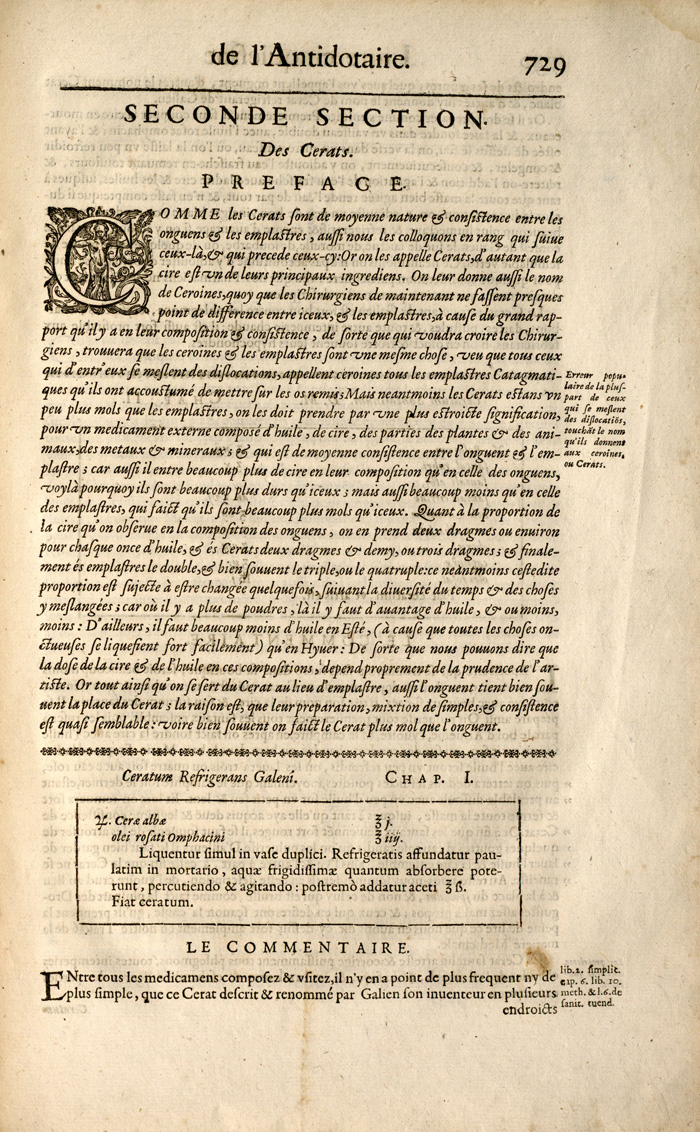 de l'Antidotaire.
729
SECONDE SECTION.
Des Cerats.
PREFACE.
COMME les Cerats ſont de moyenne nature & conſiſtence entre les
onguens & les emplaſtres, auſſi nous les colloquons en rang qui ſuiue
ceux-là, & qui precede ceux-cy: Or on les appelle Cerats, d'autant que la
cire eſt vn de leurs principaux ingrediens. On leur donne auſſi le nom
de Ceroines, quoy que les Chirurgiens de maintenant ne faſſent preſques
point de difference entre iceux, & les emplaſtres, à cauſe du grand rap-
port qu'il y a en leur compoſition & conſiſtence, de ſorte que qui voudra croire les Chirur-
giens, trouuera que les ceroines & les emplaſtres ſont vne meſme choſe, veu que tous ceux
qui d'entr'eux ſe meſlent des diſlocations, appellent ceroines tous les emplaſtres Catagmati-
ques qu'ils ont accouſtumé de mettre ſur les os remis; Mais neantmoins les Cerats eſtans vn
peu plus mols que les emplaſtres, on les doit prendre par vne plus eſtroicte ſignification,
pour vn medicament externe compoſé d'huile, de cire, des parties des plantes & des ani-
maux, des metaux & mineraux; & qui eſt de moyenne conſiſtence entre l'onguent & l'em-
plaſtre; car auſſi il entre beaucoup plus de cire en leur compoſition qu'en celle des onguens,
voylà pourquoy ils ſont beaucoup plus durs qu'iceux; mais auſſi beaucoup moins qu'en celle
des emplaſtres, qui faict qu'ils ſont beaucoup plus mols qu'iceux. Quant à la proportion de
la cire qu'on obſerue en la compoſition des onguens, on en prend deux dragmes ou enuiron
pour chaſque once d'huile, & és Cerats deux dragmes & demy, ou trois dragmes; & finale-
ment és emplaſtres le double, & bien ſouuent le triple, ou le quatruple: ce neãtmoins ceſtedite
proportion eſt ſujecte à eſtre changée quelquefois, ſuiuant la diuerſité du temps & des choſes
y meſlangées; car où il y a plus de poudres, là il y faut d'auantage d'huile, & ou moins,
moins: D'ailleurs, il faut beaucoup moins d'huile en Eſté, (à cauſe que toutes les choſes on-
ctueuſes ſe liquefient fort facilement) qu'en Hyuer: De ſorte que nous pouuons dire que
la doſe de la cire & de l'huile en ces compoſitions, depend proprement de la prudence de l'ar-
tiſte. Or tout ainſi qu'on ſe ſert du Cerat au lieu d'emplaſtre, auſſi l'onguent tient bien ſou-
uent la place du Cerat; la raiſon eſt, que leur preparation, mixtion de ſimples, & conſiſtence
eſt quaſi ſemblable: voire bien ſouuent on faict le Cerat plus mol que l'onguent.
Erreur popu-
laire de la pluſ-
part de ceux
qui ſe meſlent
des diſlocatiõs,
touchãt le nom
qu'ils donnent
aux ceroines,
ou Cerats.
Ceratum Refrigerans Galeni. CHAP. I.
♃. Ceræ albæ ℥ j.
olei roſati Omphacini ℥ iiij.
Liquentur ſimul in vaſe duplici. Refrigeratis affundatur pau-
latim in mortario, aquæ frigidiſſimæ quantum abſorbere pote-
runt, percutiendo & agitando: poſtremò addatur aceti ℥ ß.
Fiat ceratum.
LE COMMENTAIRE.
ENtre tous les medicamens compoſez & vſitez, il n'y en a point de plus frequent ny de
plus ſimple, que ce Cerat deſcrit & renommé par Galien ſon inuenteur en pluſieurs
endroicts
lib. 2. ſimplic.
cap. 6. lib. 10.
meth. & l. 6. de
ſanit. tuend.